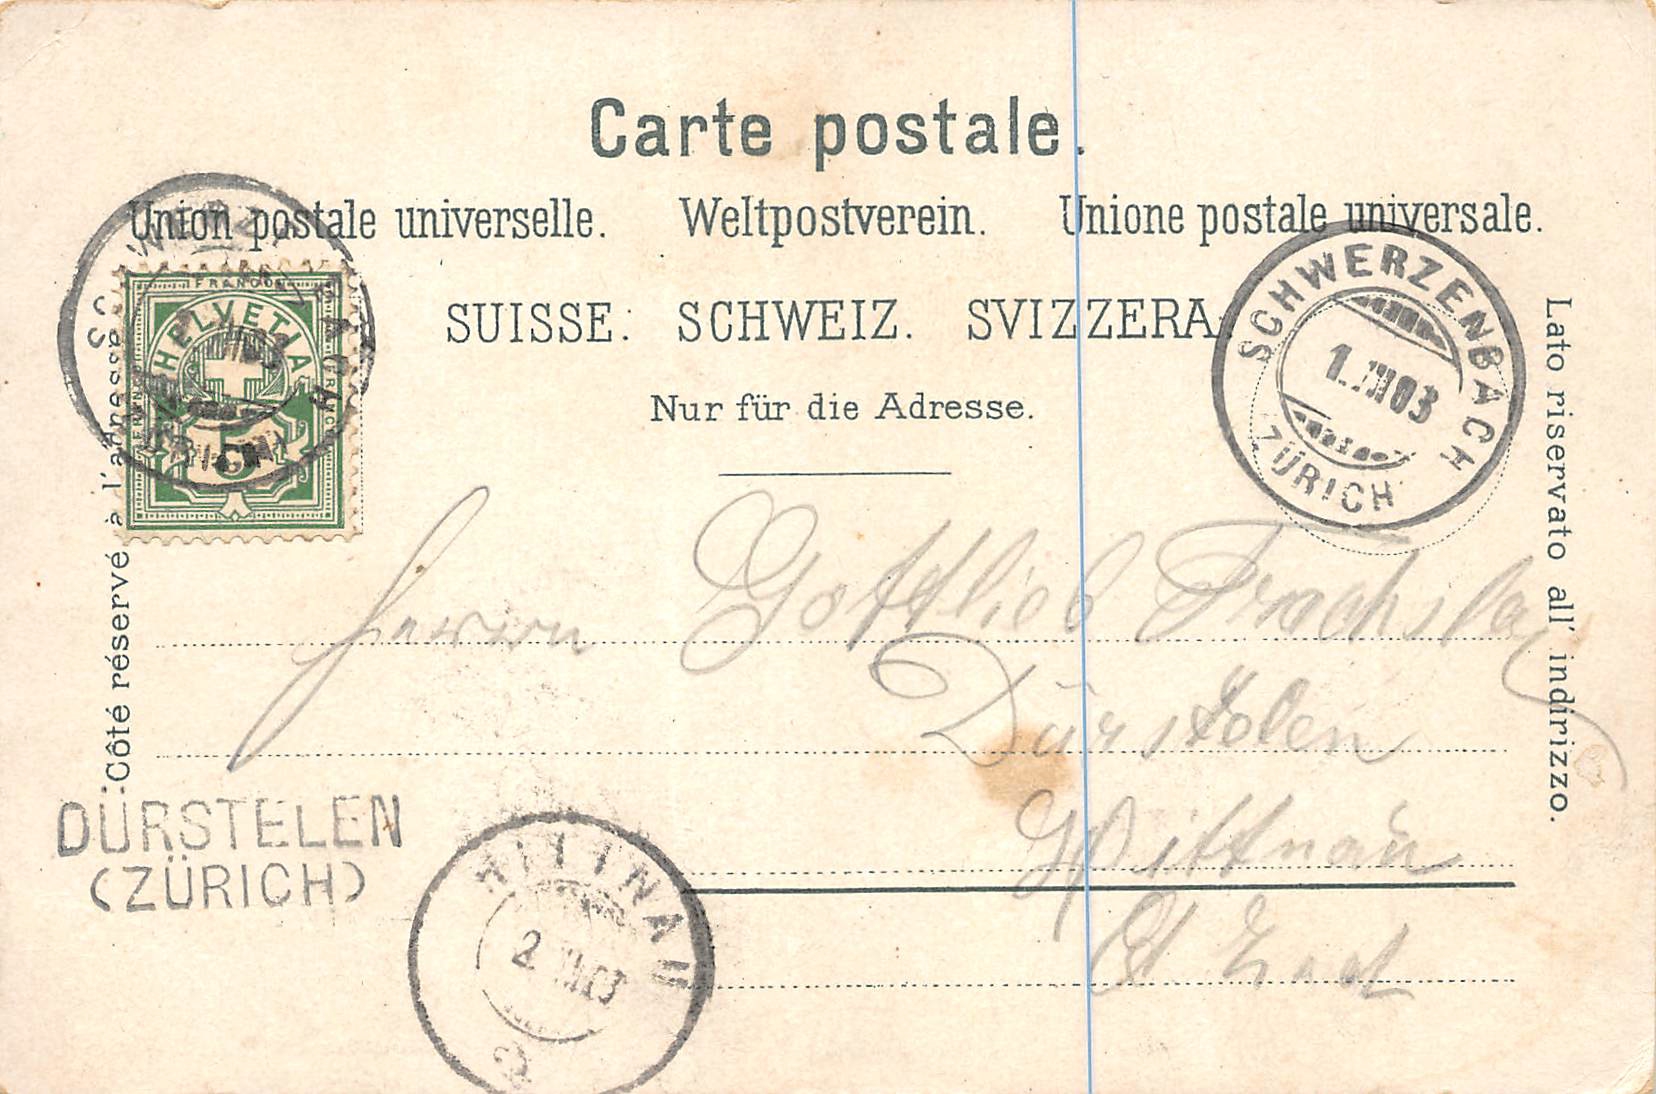 Carte postale.
Union postale universelle. Weltpostverein. Unione postale universale.
SUISSE. SCHWEIZ. SVIZZERA.
Nur für die Adresse.
Côté réservé à l'adresse.
Lato riservato all' indirizzo.
FRANCO
HELVETIA
5
SCHWERZENBACH
1. 03
ZÜRICH
Herrn Gottlieb
Dürstelen
Hittnau
DÜRSTELEN
(ZÜRICH)
HITTNAU
2. 03